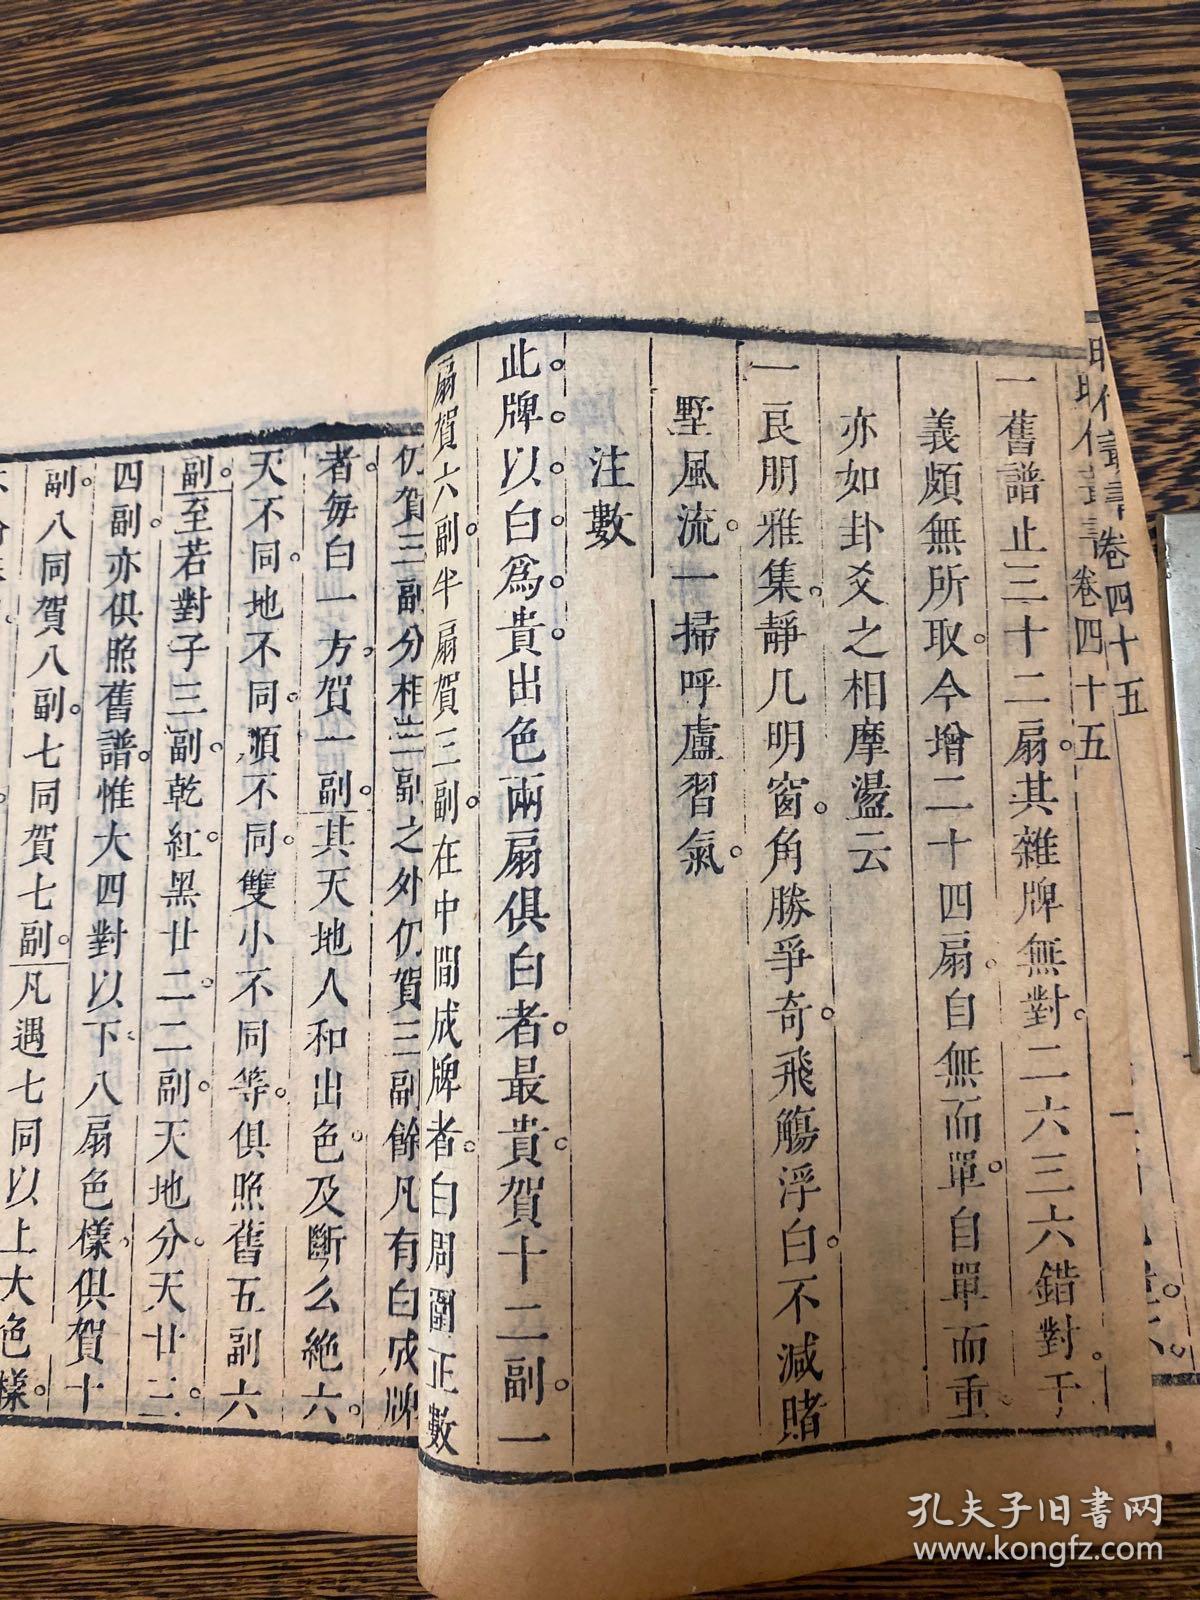 昭代叢書卷四十五
一舊譜止三十二扇其雜牌無對二六三六錯對于
義頗無所取今增二十四扇自無而單自單而重
亦如卦爻之相摩盪云
一良朋雅集靜几明窗角勝爭奇飛觴浮白不減賭
墅風流一掃呼盧習氣
注數
此牌以白爲貴出色兩扇俱白者最貴賀十二副一
扇賀六副半扇賀三副在中間成牌者白周圍正數
仍賀三副分相三副之外仍賀三副餘凡有白成牌
者每白一方賀一副其天地人和出色及斷么絶六
天不同地不同順不同雙小不同等俱照舊五副六
副至若對子三副乾紅黑廿二二副天地分天廿二
四副亦俱照舊譜惟大四對以下八扇色樣俱賀十
副八同賀八副七同賀七副凡遇七同以上大色樣
孔夫子旧书网
www.kongfz.com